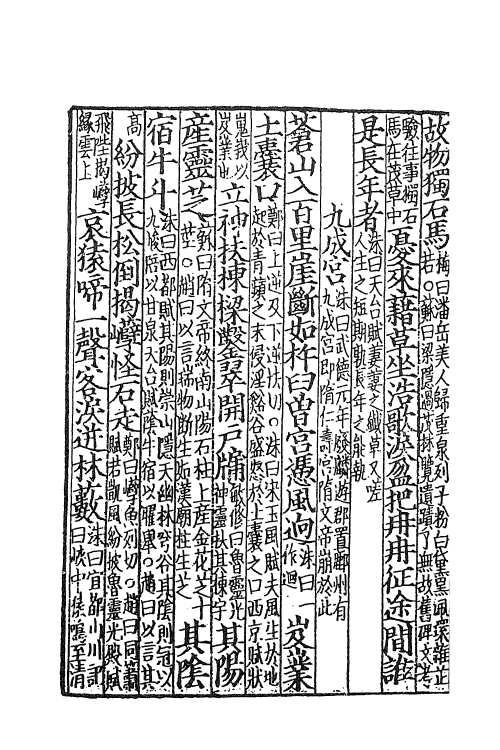 故物獨石馬梅曰潘岳美人歸重泉列子粉白黛黑珮環雜芷若。蘇曰梁隱過茂林覽遺蹟了無故舊碑文考
往事獨石馬在茂草中憂來藉草坐浩歌淚盈把冉冉征途間誰
是長年者洙曰天台賦萋萋之纖草又嗟人生之短期孰長年之能執
九成宮洙曰武德元年廢麟遊郡置鄜州有九成宮即隋仁壽宮隋文帝崩於此
蒼山入百里崖斷如杵臼曾宮憑風迥洙曰一作迴岌業
土囊口鄭曰上逆及下逆快切。洙曰宋玉風賦夫風生於地起於青蘋之末侵淫谿谷盛怒於土囊之口西京賦狀
嵬峩以岌業也立神扶棟梁鑿翠開戶牖敏修曰魯靈光神靈扶其棟宇其陽
產靈芝蘇曰隋文帝終南山陽石柱上產金花芝十莖。趙曰以言耑物斷生如漢廟柱生芝其陰
宿牛斗洙曰西都賦其陽則崇山隱天幽林穹谷其陰則冠以九嵕陪以甘泉天台賦蔭牛宿以曜峯。趙曰以言其
高紛披長松倒揭孽怪石走鄭曰孽魚列切。趙曰同簫賦若凱風紛披魯靈光殿賦
飛陛揭孽緣雲上哀猿啼一聲客淚迸林藪洙曰宜都山川記曰峽中猿鳴至清